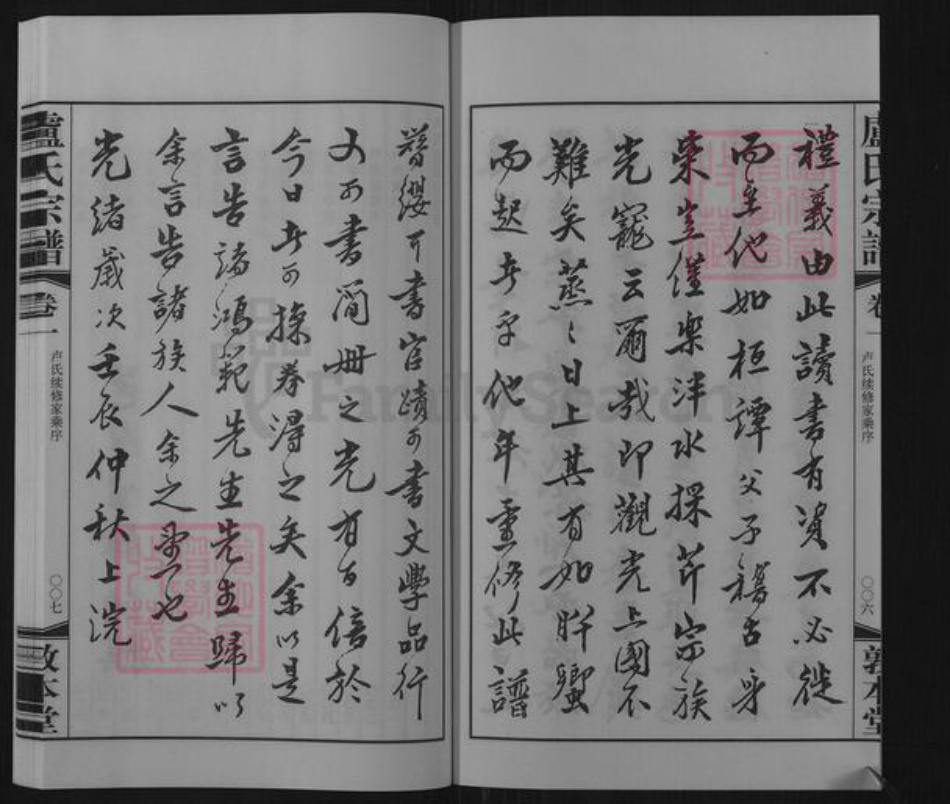 盧氏宗譜
卷一
卢氏续修家乘序
〇〇六
敦本堂
禮義由此讀書有資不必徙
而至他如桓譚父子稽古身
榮豈僅樂泮水採芹宗族
光寵云爾哉即觀光上國不
難矣蒸々日上其有如肸蠁
而起者乎他年重修此譜
簪纓可書宦蹟可書文學品行
又可書簡冊之光有百倍於
今日者可操券得之矣余以是
言告諸鴻範先生先生歸以
余言告諸族人余之望也
光緒歲次壬辰仲秋上浣
盧氏宗譜
卷一
卢氏续修家乘序
〇〇七
敦本堂
FamilySearch